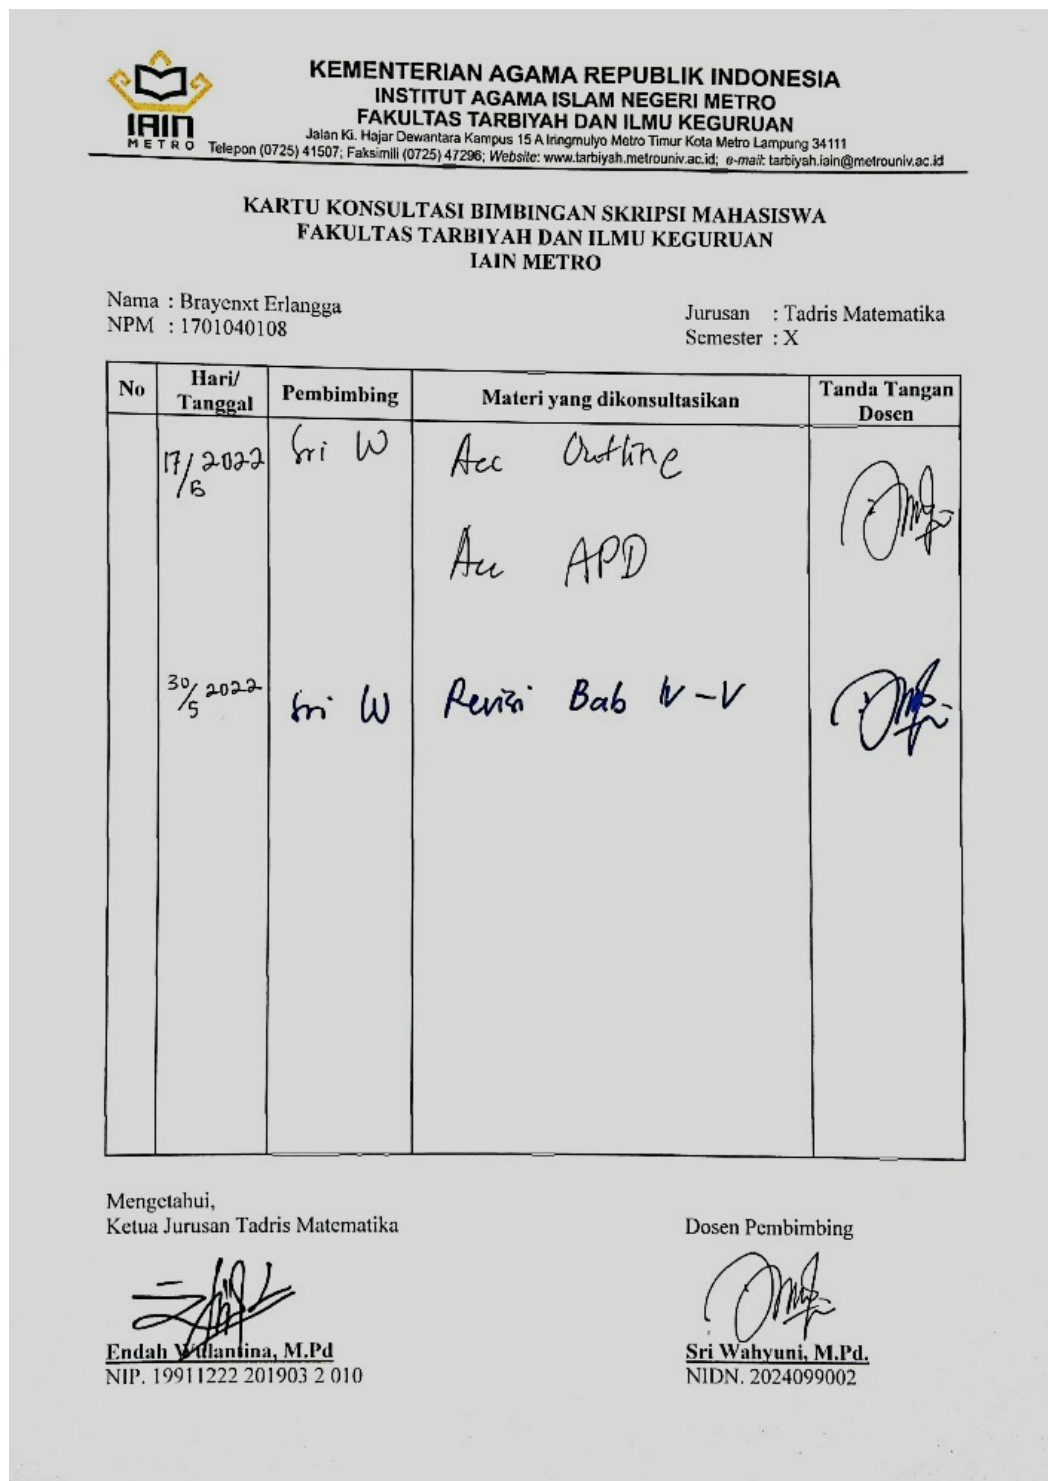 IAIN
METRO
KEMENTERIAN AGAMA REPUBLIK INDONESIA
INSTITUT AGAMA ISLAM NEGERI METRO
FAKULTAS TARBIYAH DAN ILMU KEGURUAN
Jalan Ki. Hajar Dewantara Kampus 15 A Iringmulyo Metro Timur Kota Metro Lampung 34111
Telepon (0725) 41507; Faksimili (0725) 47296; Website: www.tarbiyah.metrouniv.ac.id; e-mail: tarbiyah.iain@metrouniv.ac.id
KARTU KONSULTASI BIMBINGAN SKRIPSI MAHASISWA
FAKULTAS TARBIYAH DAN ILMU KEGURUAN
IAIN METRO
Nama : Brayenxt Erlangga
NPM : 1701040108
Jurusan : Tadris Matematika
Semester : X
No
Hari/
Tanggal
Pembimbing
Materi yang dikonsultasikan
Tanda Tangan
Dosen
17/ 2022 Sri W Acc Outline
Acc APD
30/5 2022 Sri W Revisi Bab IV - V
Mengetahui,
Ketua Jurusan Tadris Matematika
Endah Wulantina, M.Pd
NIP. 19911222 201903 2 010
Dosen Pembimbing
Sri Wahyuni, M.Pd.
NIDN. 2024099002